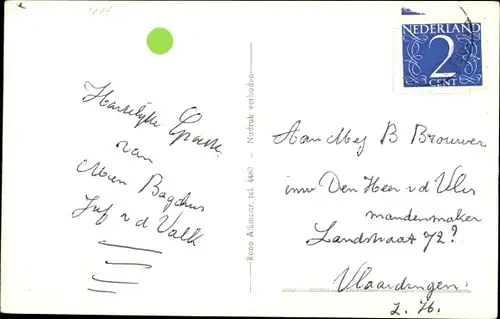 Hartelijke Groeten
van
Mien Bagchus
Juf v d Valk
Rono Alkmaar, tel. 4467 - Nadruk verboden
NEDERLAND
2
CENT
Aan Mej B Brouwer
inw Den Heer v d Vlis
mandenmaker
Landstraat 72?
Vlaardingen
Z. H.